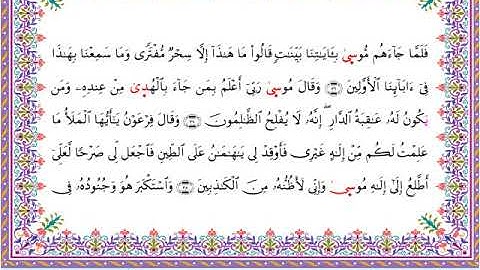 فَلَمَّا جَآءَهُم مُّوسَىٰ بِـَٔايَـٰتِنَا بَيِّنَـٰتٍ قَالُوا۟ مَا هَـٰذَآ إِلَّا سِحْرٌ مُّفْتَرًى وَمَا سَمِعْنَا بِهَـٰذَا
فِىٓ ءَابَآئِنَا ٱلْأَوَّلِينَ ﴿٣٦﴾ وَقَالَ مُوسَىٰ رَبِّىٓ أَعْلَمُ بِمَن جَآءَ بِٱلْهُدَىٰ مِنْ عِندِهِۦ وَمَن
تَكُونُ لَهُۥ عَـٰقِبَةُ ٱلدَّارِ ۖ إِنَّهُۥ لَا يُفْلِحُ ٱلظَّـٰلِمُونَ ﴿٣٧﴾ وَقَالَ فِرْعَوْنُ يَـٰٓأَيُّهَا ٱلْمَلَأُ مَا
عَلِمْتُ لَكُم مِّنْ إِلَـٰهٍ غَيْرِى فَأَوْقِدْ لِى يَـٰهَـٰمَـٰنُ عَلَى ٱلطِّينِ فَٱجْعَل لِّى صَرْحًا لَّعَلِّىٓ
أَطَّلِعُ إِلَىٰٓ إِلَـٰهِ مُوسَىٰ وَإِنِّى لَأَظُنُّهُۥ مِنَ ٱلْكَـٰذِبِينَ ﴿٣٨﴾ وَٱسْتَكْبَرَ هُوَ وَجُنُودُهُۥ فِى